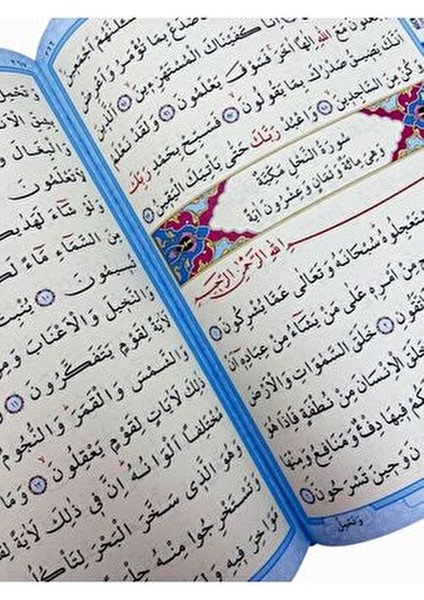 وَأَعْرِضْ
اِنَّا كَفَيْنَاكَ الْمُسْتَهْزِء۪ينَ اَلَّذ۪ينَ
مَعَ اللّٰهِ اِلٰهًا اٰخَرَ فَسَوْفَ يَعْلَمُونَ وَلَقَدْ نَعْلَمُ
اَنَّكَ يَض۪يقُ صَدْرُكَ بِمَا يَقُولُونَ فَسَبِّحْ بِحَمْدِ رَبِّكَ
وَكُنْ مِنَ السَّاجِد۪ينَ وَاعْبُدْ رَبَّكَ حَتّٰى يَأْتِيَكَ الْيَق۪ينُ
سُورَةُ النَّحْلِ مَكِّيَّةٌ
وَهِيَ مِائَةٌ وَثَمَانٍ وَعِشْرُونَ اٰيَةً
اللّٰهِ الرَّحْمٰنِ الرَّح۪يمِ
تَسْتَعْجِلُوهُ سُبْحَانَهُ وَتَعَالٰى عَمَّا يُشْرِكُونَ
مِنْ اَمْرِه۪ عَلٰى مَنْ يَشَاءُ مِنْ عِبَادِه۪ اَنْ
خَلَقَ السَّمٰوَاتِ وَالْاَرْضَ
خَلَقَ الْاِنْسَانَ مِنْ نُطْفَةٍ فَاِذَا هُوَ
ف۪يهَا دِفْءٌ وَمَنَافِعُ وَمِنْهَا
وَح۪ينَ تَسْرَحُونَ
وَتَحْمِلُ
وَتَحْمِلُ
وَالْبِغَالَ
لَا تَعْلَمُونَ
وَلَوْ شَاءَ لَهَدٰيكُمْ
مِنَ السَّمَاءِ مَاءً
تُس۪يمُونَ
وَالنَّخ۪يلَ وَالْاَعْنَابَ وَمِنْ
لَاٰيَةً لِقَوْمٍ يَتَفَكَّرُونَ
وَالشَّمْسَ وَالْقَمَرَ وَالنُّجُومُ
ذٰلِكَ لَاٰيَاتٍ لِقَوْمٍ يَعْقِلُونَ وَمَا
مُخْتَلِفًا اَلْوَانُهُ اِنَّ ف۪ي ذٰلِكَ لَاٰيَةً
وَهُوَ الَّذ۪ي سَخَّرَ الْبَحْرَ لِتَأْكُلُوا
وَتَسْتَخْرِجُوا مِنْهُ
مَوَاخِرَ ف۪يهِ